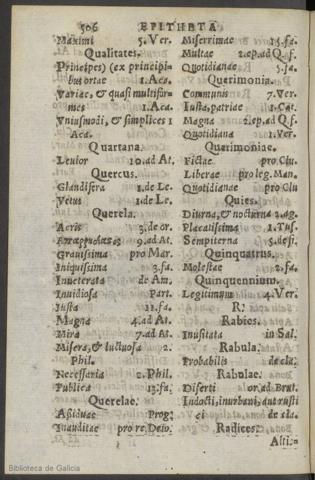 506 EPITHETA
Maximi 5. Ver.
Qualitates.
Principes) (ex principi-
bus ortae 1. Aca.
Variae, & quasi multifor-
mes 1. Aca.
Vniusmodi, & simplices 1
Aca.
Quartana.
Leuior 10. ad At.
Quercus.
Glandifera 1. de Le.
Vetus 1. de Le.
Querela.
Acris 3. de or.
9. ad At.
Grauissima pro Mar.
Iniquissima 3. fa.
Inueterata de Am.
Inuidiosa Part.
Iusta 11. fa.
Magna 4. ad At.
Mira 7. ad At.
Misera, & luctuosa 2.
Phil.
Necessaria 2. Phil.
Publica 13. fa.
Querelae.
Assiduae Prog:
Inauditae pro re. Deio.
Miserrimae 15. fa.
Multae 2. ep. ad Q. f.
Quotidianae 5. fa.
Querimonia.
Communis 7. Ver.
Iusta, patriae 1. Cat.
Magna 2. ep. ad Q. f.
Quotidiana 1. Ver.
Querimoniae.
Fictae pro Clu.
Liberae pro leg. Man.
Quotidianae pro Clu
Quies.
Diurna, & nocturna 2. ag.
Placatissima 1. Tus.
Sempiterna 5. de fi.
Quinquatrus.
Molestae 2. fa.
Quinquennium.
Legitimum 4. Ver.
R.
Rabies.
Inusitata in Sal.
Rabula.
Probabilis de cla.
Rabulae.
Diserti or. ad Brut.
Indocti, inurbani, aut rusti
ci de cla.
Radices.
Alti-
Biblioteca de Galicia